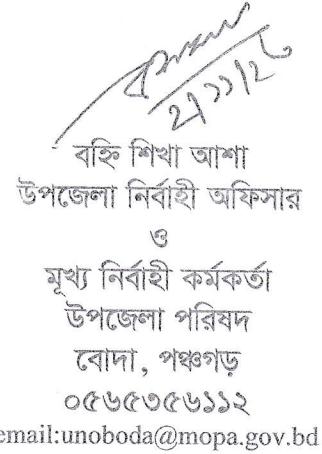 বহ্নি শিখা আশা
উপজেলা নির্বাহী অফিসার
ও
মূখ্য নির্বাহী কর্মকর্তা
উপজেলা পরিষদ
বোদা, পঞ্চগড়
০৫৬৫৩৫৬১১২
email:unoboda@mopa.gov.bd